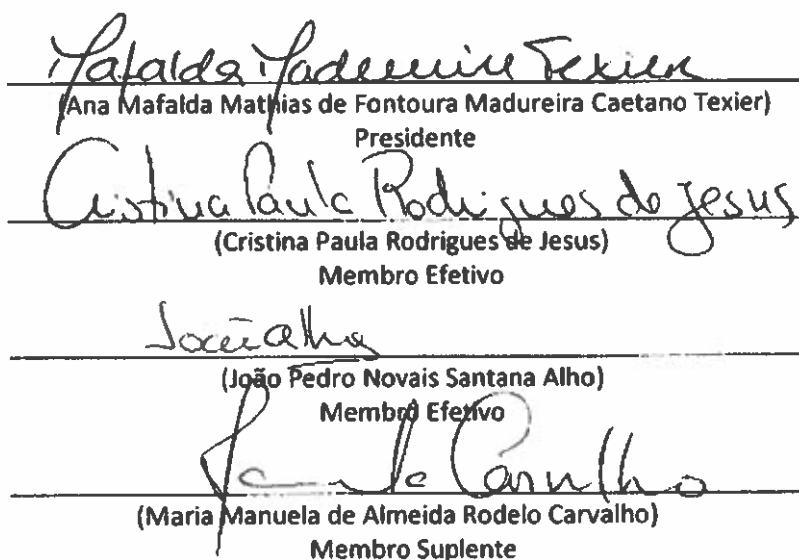 Mafalda Madureira Texier
(Ana Mafalda Mathias de Fontoura Madureira Caetano Texier)
Presidente
Cristina Paula Rodrigues de Jesus
(Cristina Paula Rodrigues de Jesus)
Membro Efetivo
João Alho
(João Pedro Novais Santana Alho)
Membro Efetivo
Manuela Carvalho
(Maria Manuela de Almeida Rodelo Carvalho)
Membro Suplente